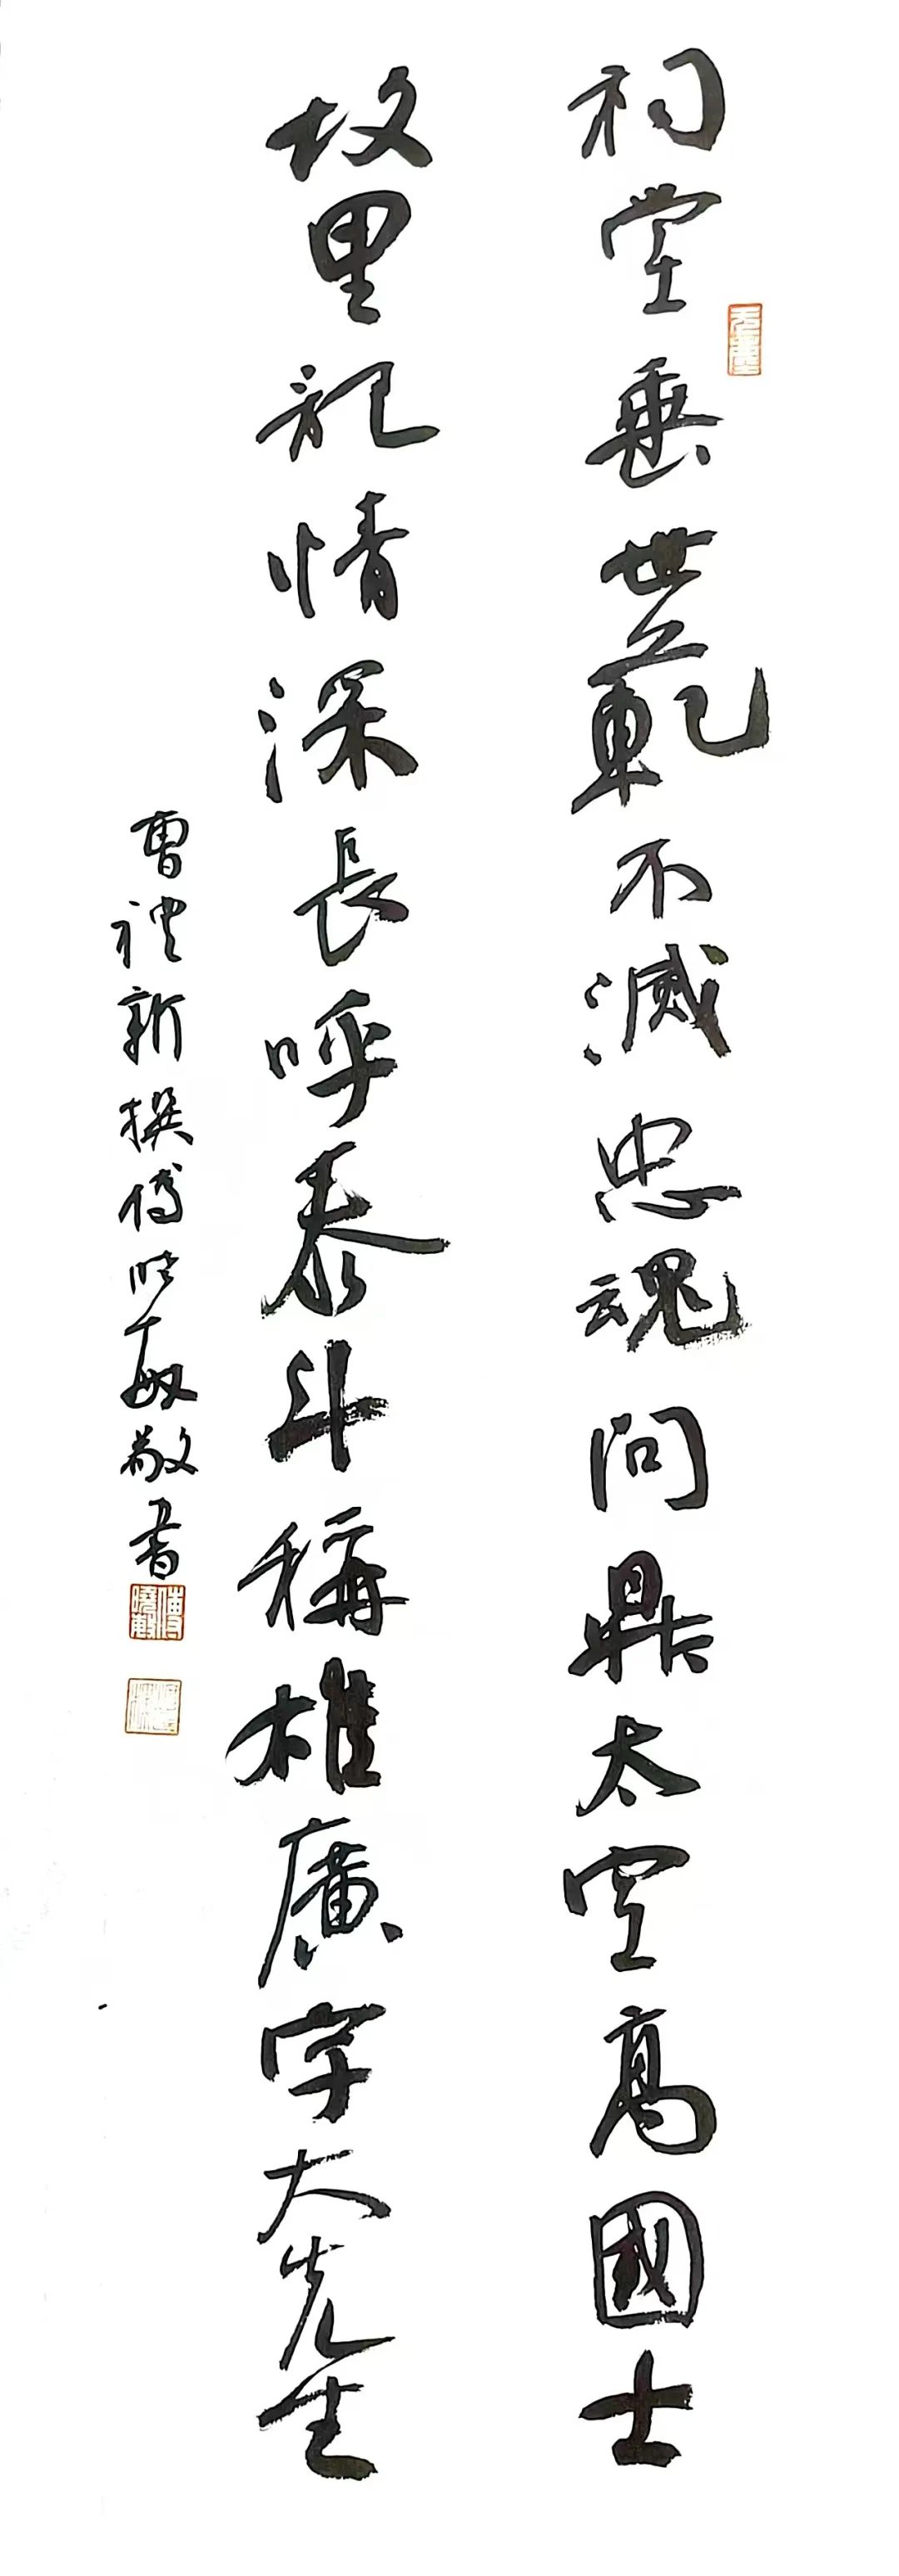 祠堂垂世範不滅忠魂問鼎太空高國士
故里記情深長呼泰斗稱雄廣宇大先生
曹禮新撰傅曉敏敬書
傅曉敏